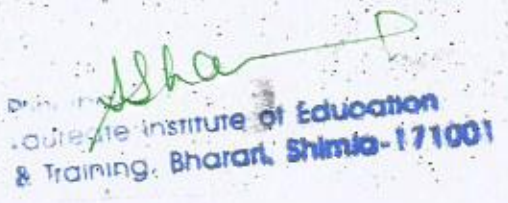 Laureate Institute of Education
& Training, Bharari, Shimla-171001